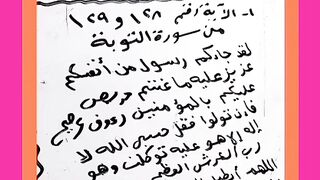 ١- الآية رقم ١٢٨ و ١٢٩
من سورة التوبة
لقد جاءكم رسول من أنفسكم
عزيز عليه ماعنتم حريص
عليكم بالمؤمنين رءوف رحيم
فإن تولوا فقل حسبي الله لا
إله إلا هو عليه توكلت وهو
رب العرش العظيم
اللهم